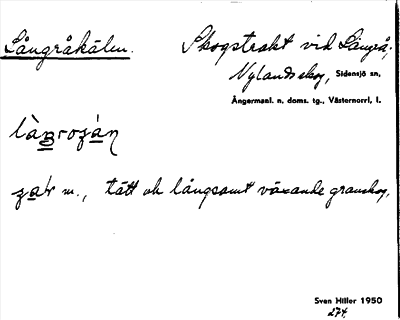 Långråkälm. Skogstrakt vid Långrå,
Nylandsskog, Sidensjö sn,
Ångermanl. n. doms. tg., Västernorrl. l.
m., tätt och långsamt växande granskog.
Sven Hiller 1950
274.